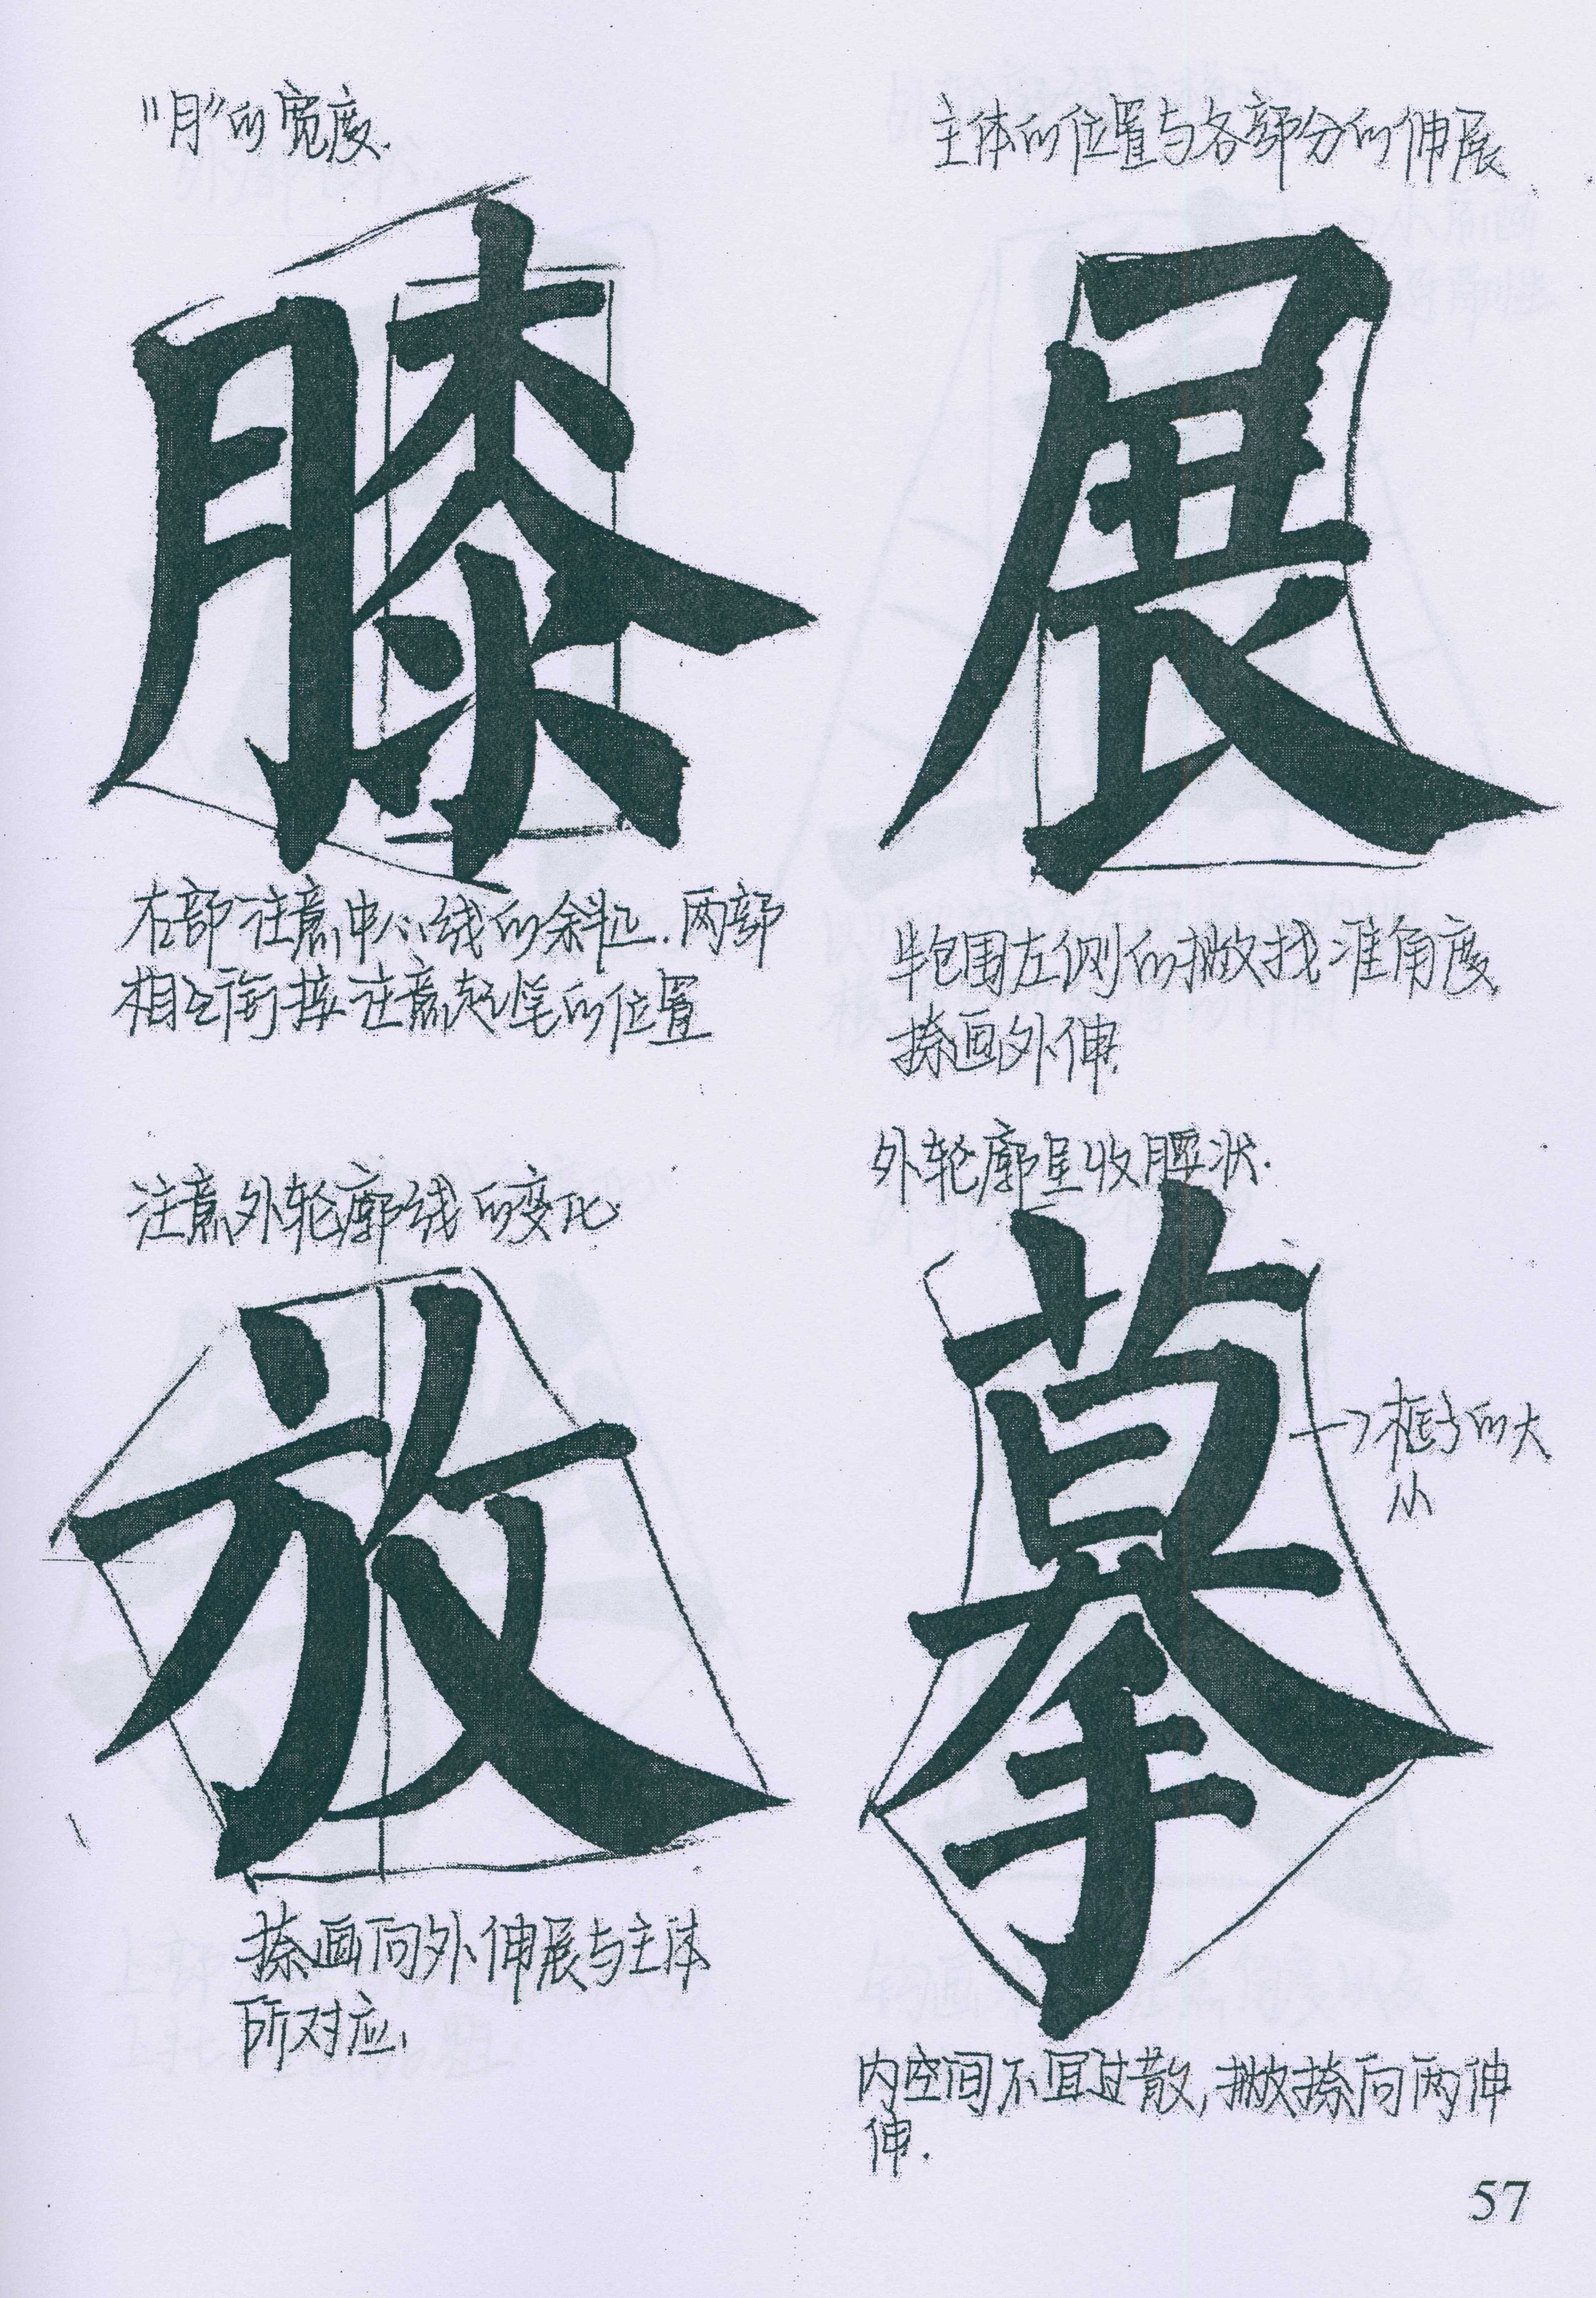 “月”的宽度.
膝
右部注意中心线的斜正.两部
相互衔接注意起笔的位置
主体的位置与各部分的伸展
展
半包围左侧的撇找准角度
捺画外伸.
注意外轮廓线的变化
放
捺画向外伸展与主体
所对应,
外轮廓呈收腰状.
摹
→框子的大
小
内空间不宜过散,撇捺向两伸
伸.
57